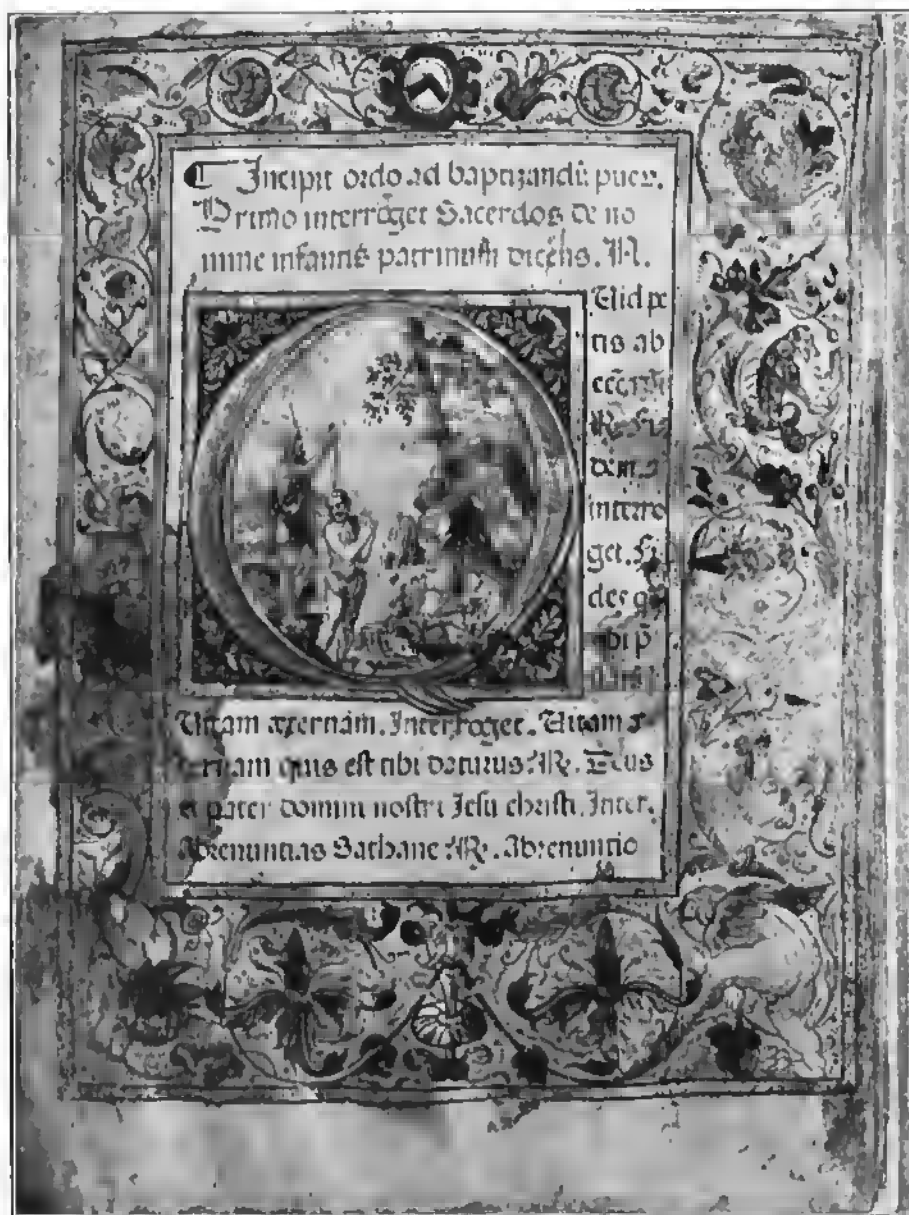 Incipit ordo ad baptizandū pueꝝ.
Primo interroget Sacerdos de no
mine infantis patrinum dicens. R.
Uid pe
tis ab
R. Fi
dem.
interro
get. Fi
des q
tibi p̄
Uitam æternam. Interroget. Uitam æ
ternam quis est tibi daturus? R. Deus
et pater domini nostri Jesu christi. Inter.
Abrenuntias Sathane? R. Abrenuntio